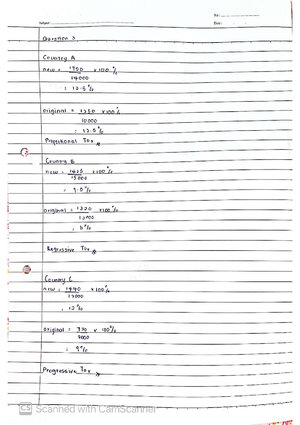 No :
Subject :
Date :
Question 3
Country A
new = 1750 x 100%
14000
= 12.5%
original = 1250 x 100%
10000
= 12.5%
Proportional Tax
Country B
new = 1425 x 100%
15000
= 9.5%
original = x 100%
Regressive Tax
Country C
new = 1440 x 100%
12000
= 12%
original = x 100%
9000
= 9%
Progressive Tax
CS Scanned with CamScanner